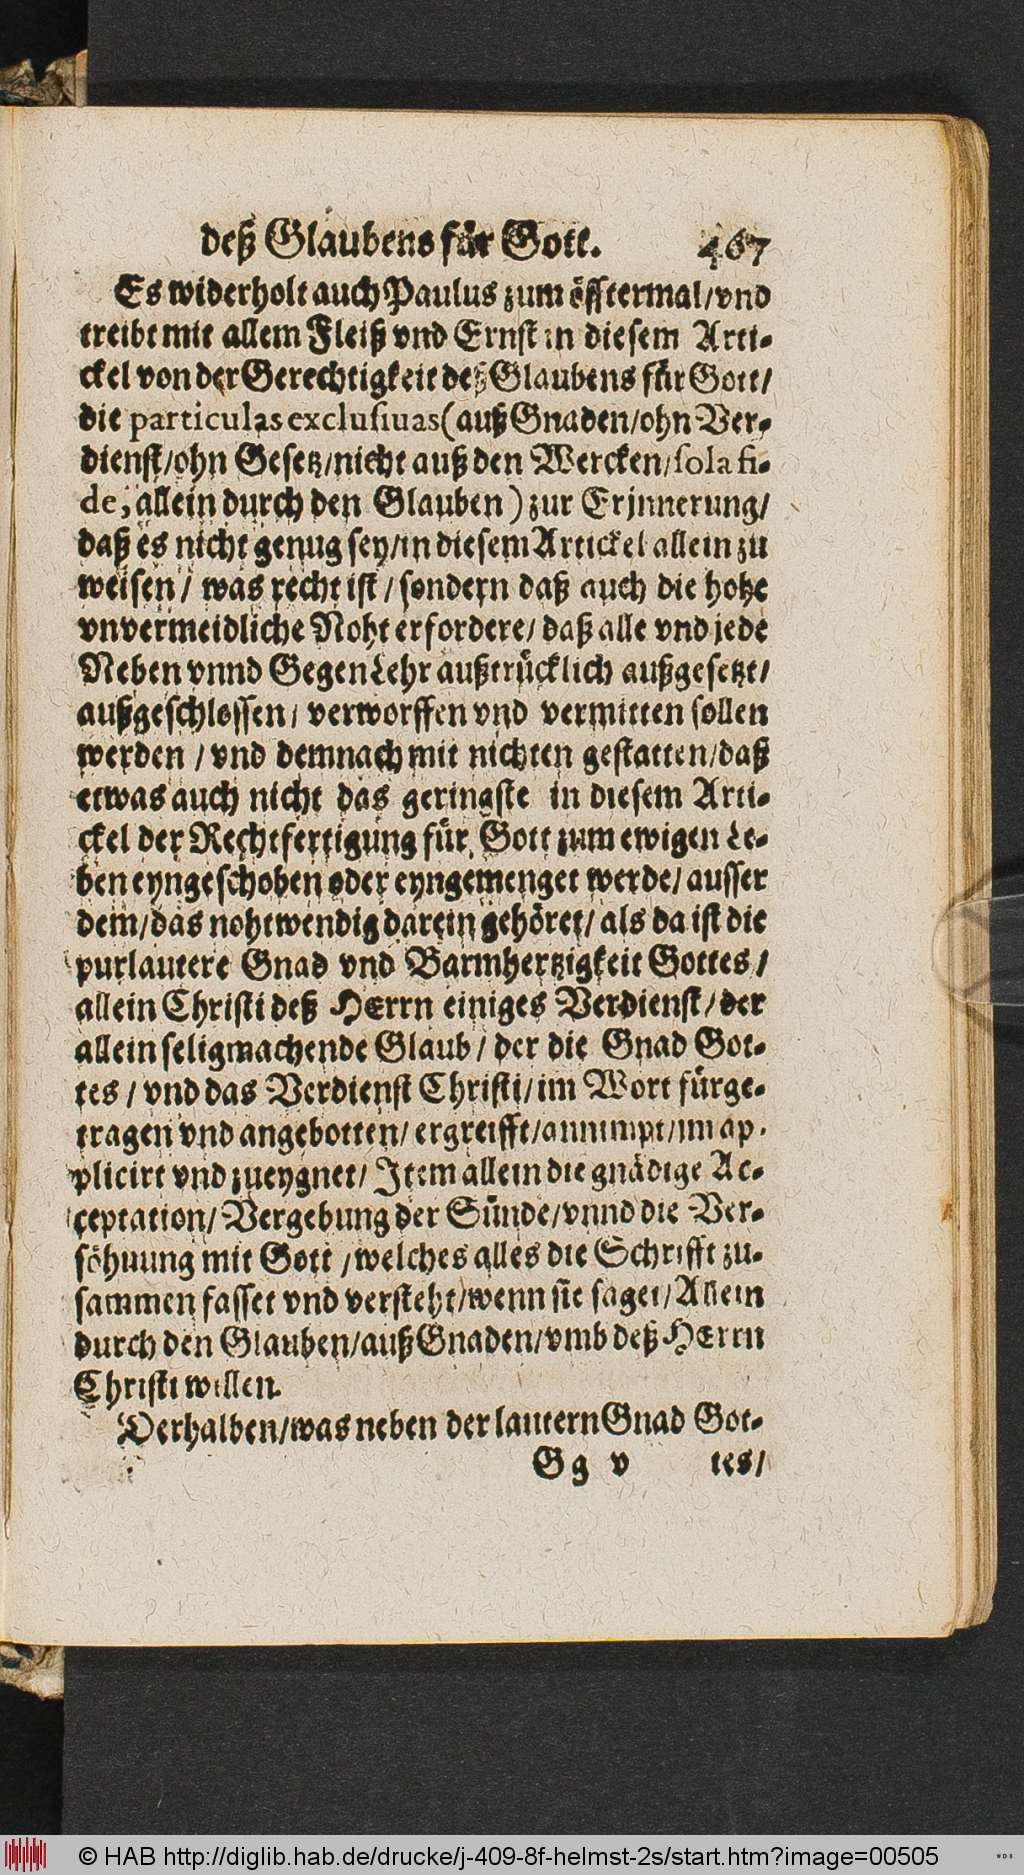 deß Glaubens für Gott. 467
Es widerholt auch Paulus zum öfftermal/vnd
treibt mit allem Fleiß vnd Ernst in diesem Arti-
ckel von der Gerechtigkeit deß Glaubens für Gott/
die particulas exclusiuas (auß Gnaden/ohn Ver-
dienst/ohn Gesetz/nicht auß den Wercken/sola fi-
de, allein durch den Glauben) zur Erjnnerung/
daß es nicht genug sey/in diesem Artickel allein zu
weisen/ was recht ist/sondern daß auch die hohe
vnvermeidliche Noht erfordere/daß alle vnd jede
Neben vnnd Gegen Lehr außtrücklich außgesetzt/
außgeschlossen/ verworffen vnd vermitten sollen
werden/vnd demnach mit nichten gestatten/daß
etwas auch nicht das geringste in diesem Arti-
ckel der Rechtfertigung für Gott zum ewigen Le-
ben eyngeschoben oder eyngemenget werde/ausser
dem/das nohtwendig darein gehöret/als da ist die
purlautere Gnad vnd Barmhertzigkeit Gottes/
allein Christi deß HErrn einiges Verdienst/der
allein seligmachende Glaub/der die Gnad Got-
tes/vnd das Verdienst Christi/im Wort fürge-
tragen vnd angebotten/ergreifft/annimpt/im ap-
plicirt vnd zueygnet/Jtem allein die gnädige Ac-
ceptation/Vergebung der Sünde/vnnd die Ver-
söhnung mit Gott/welches alles die Schrifft zu-
sammen fasset vnd versteht/wenn sie saget/Allein
durch den Glauben/auß Gnaden/vmb deß HErrn
Christi willen.
Derhalben/was neben der lautern Gnad Got-
Gg v tes/
© HAB http://diglib.hab.de/drucke/j-409-8f-helmst-2s/start.htm?image=00505